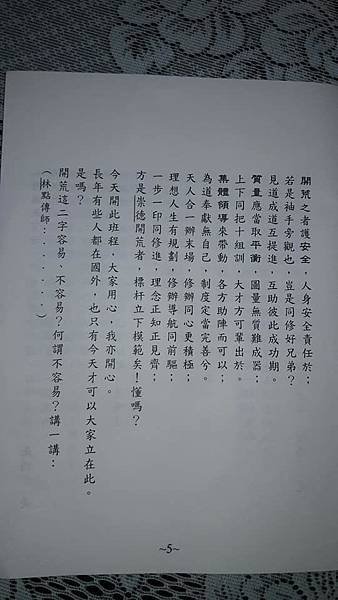 開荒之者護安全，人身安全責任於；
若是袖手旁觀也，豈是同修好兄弟？
見道成道互提進，互助彼此成功期。
質量應當取平衡，圖量無質難成器；
上下同把十組訓，大才方可輩出於。
集體領導來帶動，各方助陣而可以；
為道奉獻無自己，制度定當完善兮。
天人合一辦末場，修辦同心更積極；
理想人生有規劃，修辦導航同前驅；
一步一印同修進，理念正知正見齊；
方是崇德開荒者，標杆立下模範矣！懂嗎？
今天開此班程，大家用心，我亦開心。
長年有些人都在國外，也只有今天才可以大家立在此。
是嗎？
開荒這二字容易、不容易？何謂不容易？講一講：
（林點傳師：．．．．．．）
~5~